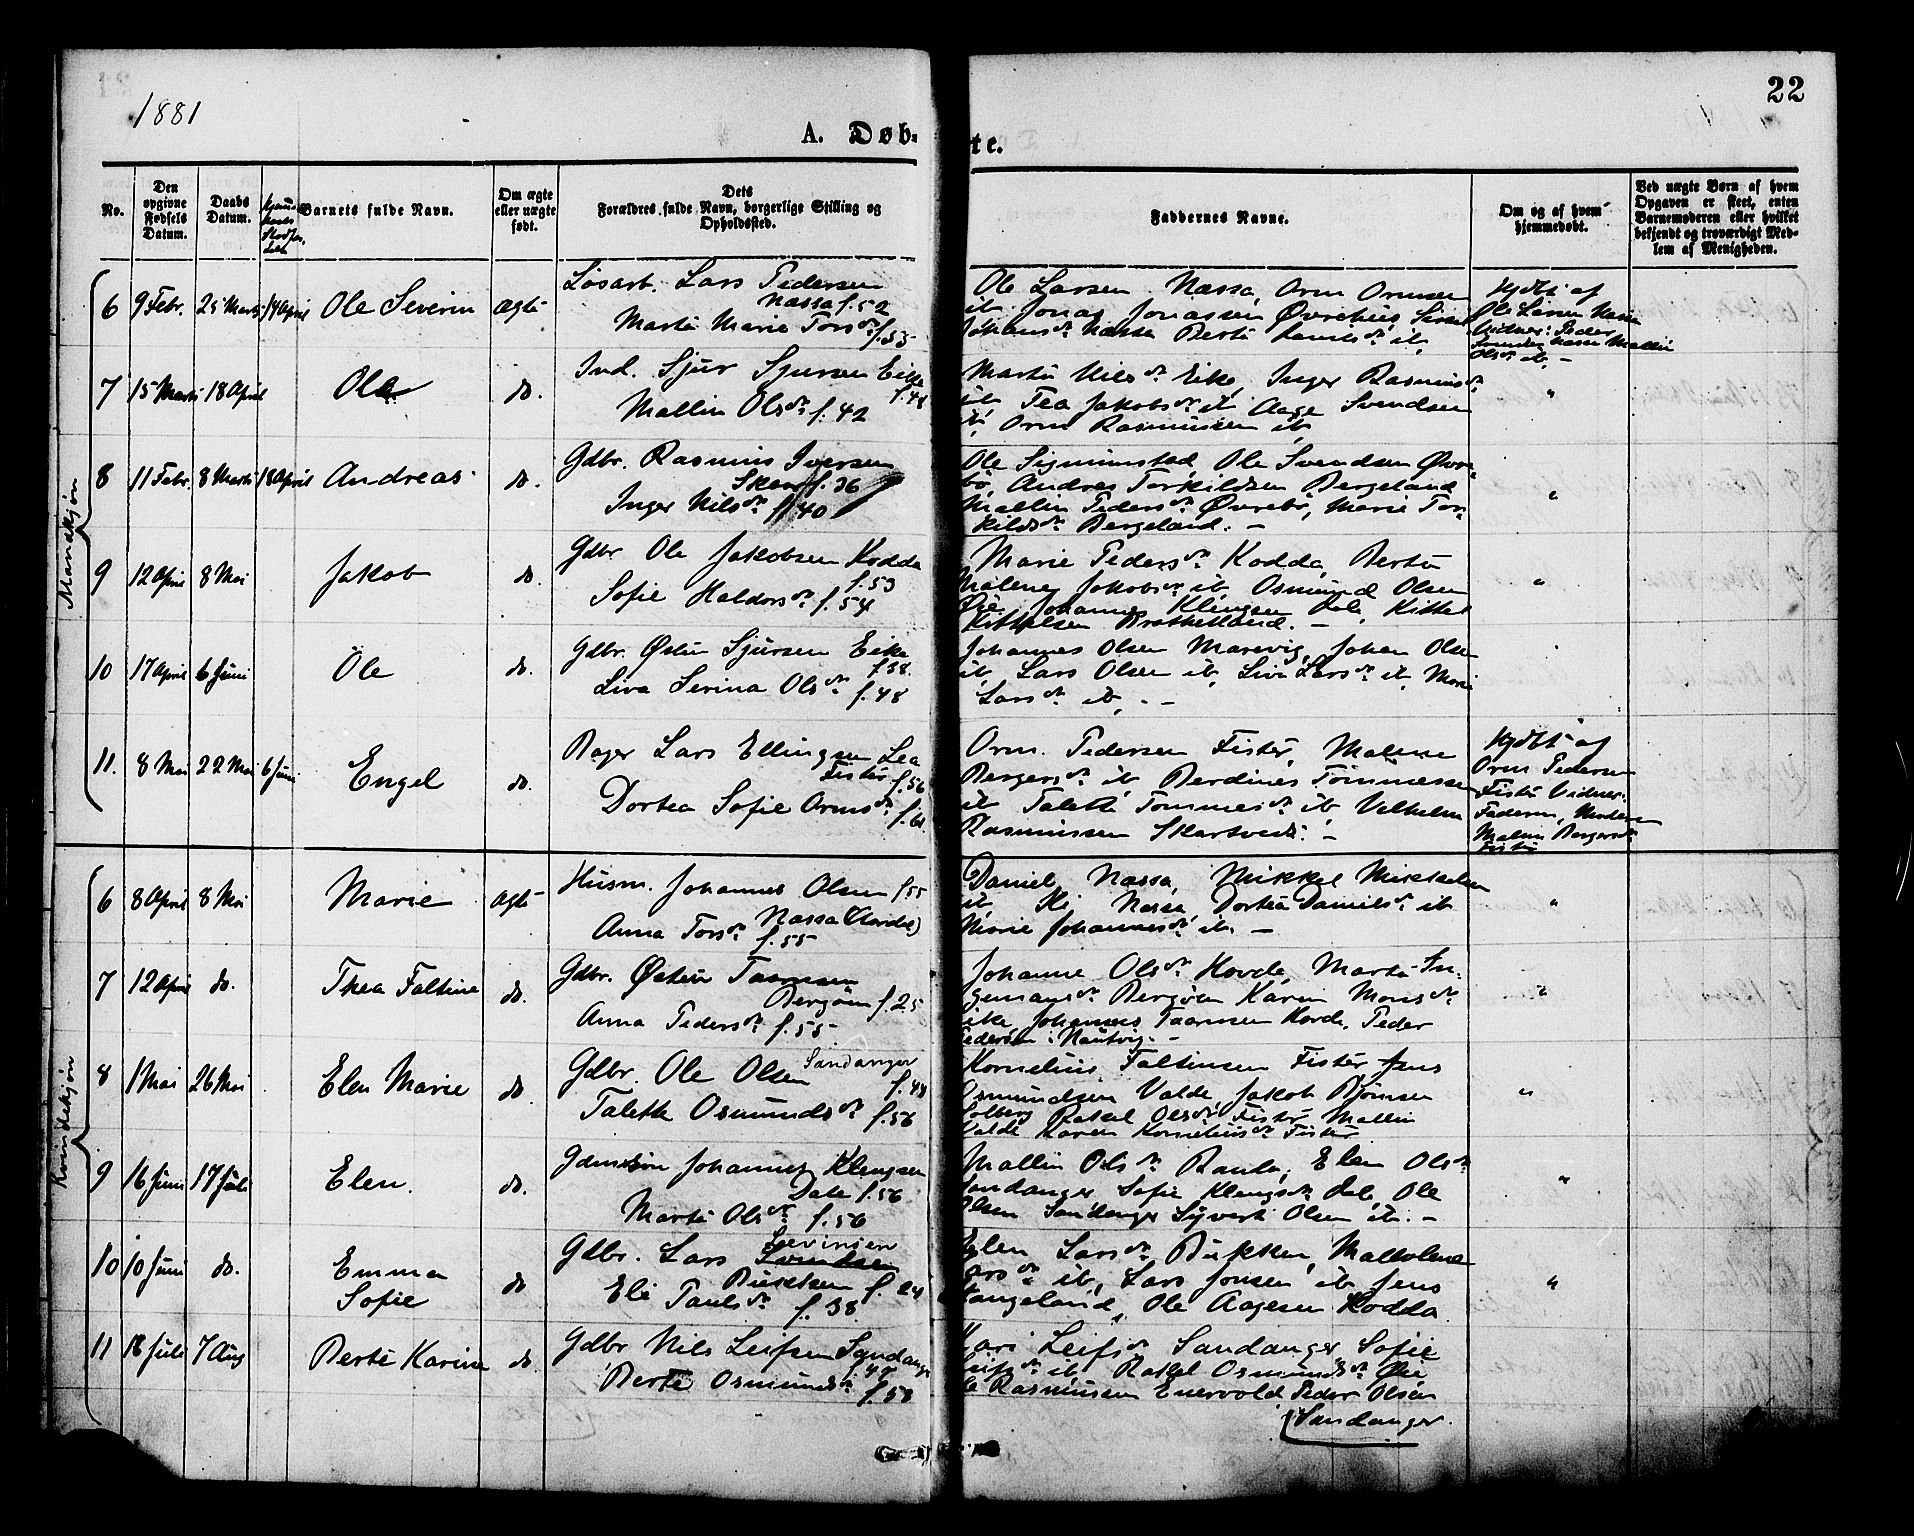 1881
22
A. Døb-
te.
No.
Den opgivne Fødsels Datum.
Daabs Datum.
Barnets fulde Navn.
Om ægte eller uægte født.
Dets Forældres fulde Navn, borgerlige Stilling og Opholdssted.
Faddernes Navne.
Om og af hvem hjemmedøbt.
Ved uægte Børn af hvem Opgaven er skeet, enten Barnemoderen eller hvilket bekjendt og troværdigt Medlem af Menigheden.
Mandkjøn
6 9 Febr. 25 Marts 14 April Ole Severin ægte
Løsarb. Lars Pedersen
Næssa f. 52
Marte Marie Torsdr f. 53
Ole Larsen Næssa, Orm Ormsen
ib Jonas Jonassen Øvrehus, Sissel
Næssa Berte ib,
Hjdbt af
Ole Larsen Næssa
Næssa Mallin
Olsdr ib -
7 15 Marts 18 April Ole do.
Ind. Sjur Sjursen Eike
f. 48
Mallin Olsdr f. 42
Marte Nilsdr Eike, Inger Rasmusdr
ib Tea Jakobsdr ib Aage Svendsen
ib, Orm Rasmussen ib
"
8 11 Febr. 8 Marts 18 April Andreas do.
Gdbr. Rasmus Iversen
Skar f. 36
Inger Nilsdr f. 40
Ole Sigmundstad, Ole Svendsen Øvre-
bø, Andres Torkildsen Bergeland
Mallin Pedersdr Øvrebø, Marie Tor-
kildsdr Bergeland. -
"
9 12 April 8 Mai Jakob do.
Gdbr Ole Jakobsen Kodda
f. 53
Sofie Haldorsdr f. 54
Marie Pedersdr Kodda, Berte
Malene Jakobsdr ib, Osmund Olsen
Øie, Johannes Klengsen Dale, Kittel
Kittelsen -
"
10 17 April 6 Juni Ole do.
Gdbr. Østen Sjursen Eike
f. 38.
Liva Serina Olsdr f. 48
Johannes Olsen Marevig, Johan Olsen
ib, Lars Olsen ib, Liva Larsdr ib, Marie
Larsdr ib, -
11. 8 Mai 22 Mai 6 Juni Engel do.
Lars Ellingsen Lea
Fister f. 56
Dortea Sofie Ormsdr
f. 61.
Orm Pedersen Fister, Malene
Bergersdr ib Berdines Tommessen
ib Talette Tommesdr ib Velhelm
Rasmussen Skartveit. -
Hjdbt af
Orm Pedersen
Fister Vidner:
Faderen, Moderen
Malene Bergersdr
Fister
Kvindekjøn
6 8 April 8 Mai Marie ægte
Husm. Johannes Olsen f. 55
Næssa (Aardal)
Anna Torsdr f. 55
Daniel Næssa, Mikkel Mikkelsen
ib Næssa, Dortea Danielsdr ib
Marie Johannesdr ib. -
"
7 12 April do. Thea Faltine do.
Gdbr. Østen Taarnsen
Bergøen f. 25
Anna Pedersdr f. 55
Johanne Olsdr Horde, Marte In-
gemansdr Bergøen Karin Monsdr
Eike, Johannes Taarnsen Horde, Peder
Pedersen Nautvig. -
"
8 1 Mai 26 Mai Elen Marie do.
Gdbr. Ole Olsen Sandanger
f. 44
Talette Osmundsdr f. 56
Kornelius Faltinsen Fister Jens
Osmundsen Valde, Jakob Bjørnsen
Solberg Rakel Olsdr Fister Mallin
Valde Karen Korneliusdr Fister
"
9 16 Juni 17 Juli Elen. do.
Gdmdsøn Johannes Klengsen
Dale f. 56
Marte Olsdr f. 56
Mallin Olsdr Elen Olsdr
Sandanger Sofie Klengsdr Dale, Ole
Olsen Sandanger Syvert Olsen ib. -
"
10 10 Juni do. Emma
Sofie do
Gdbr. Lars Sevrinsen
Svendsen
f. 24
Eli Paulsdr f. 38.
Elen Larsdr Bukken,
Larsdr ib, Lars Jonsen ib Jens
Tangeland, Ole Aagesen Kodda
"
11 18 Juli 7 Aug Berte Karine do.
Gdbr Nils Leifsen Sandanger
f. 48
Berte Osmundsdr f. 58
Kari Leifsdr Sandanger Sofie
Leifsdr ib, Rakel Osmundsdr Øie
Ole Rasmussen Enervold Peder Olsen
Sandanger.